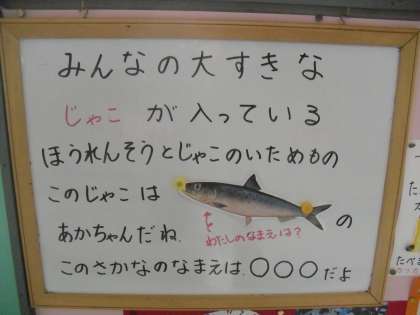 みんなの大すきな
じゃこ が入っている
ほうれんそうとじゃこのいためもの
このじゃこは の
あかちゃんだね。
わたしのなまえは?
このさかなのなまえは、○○○だよ